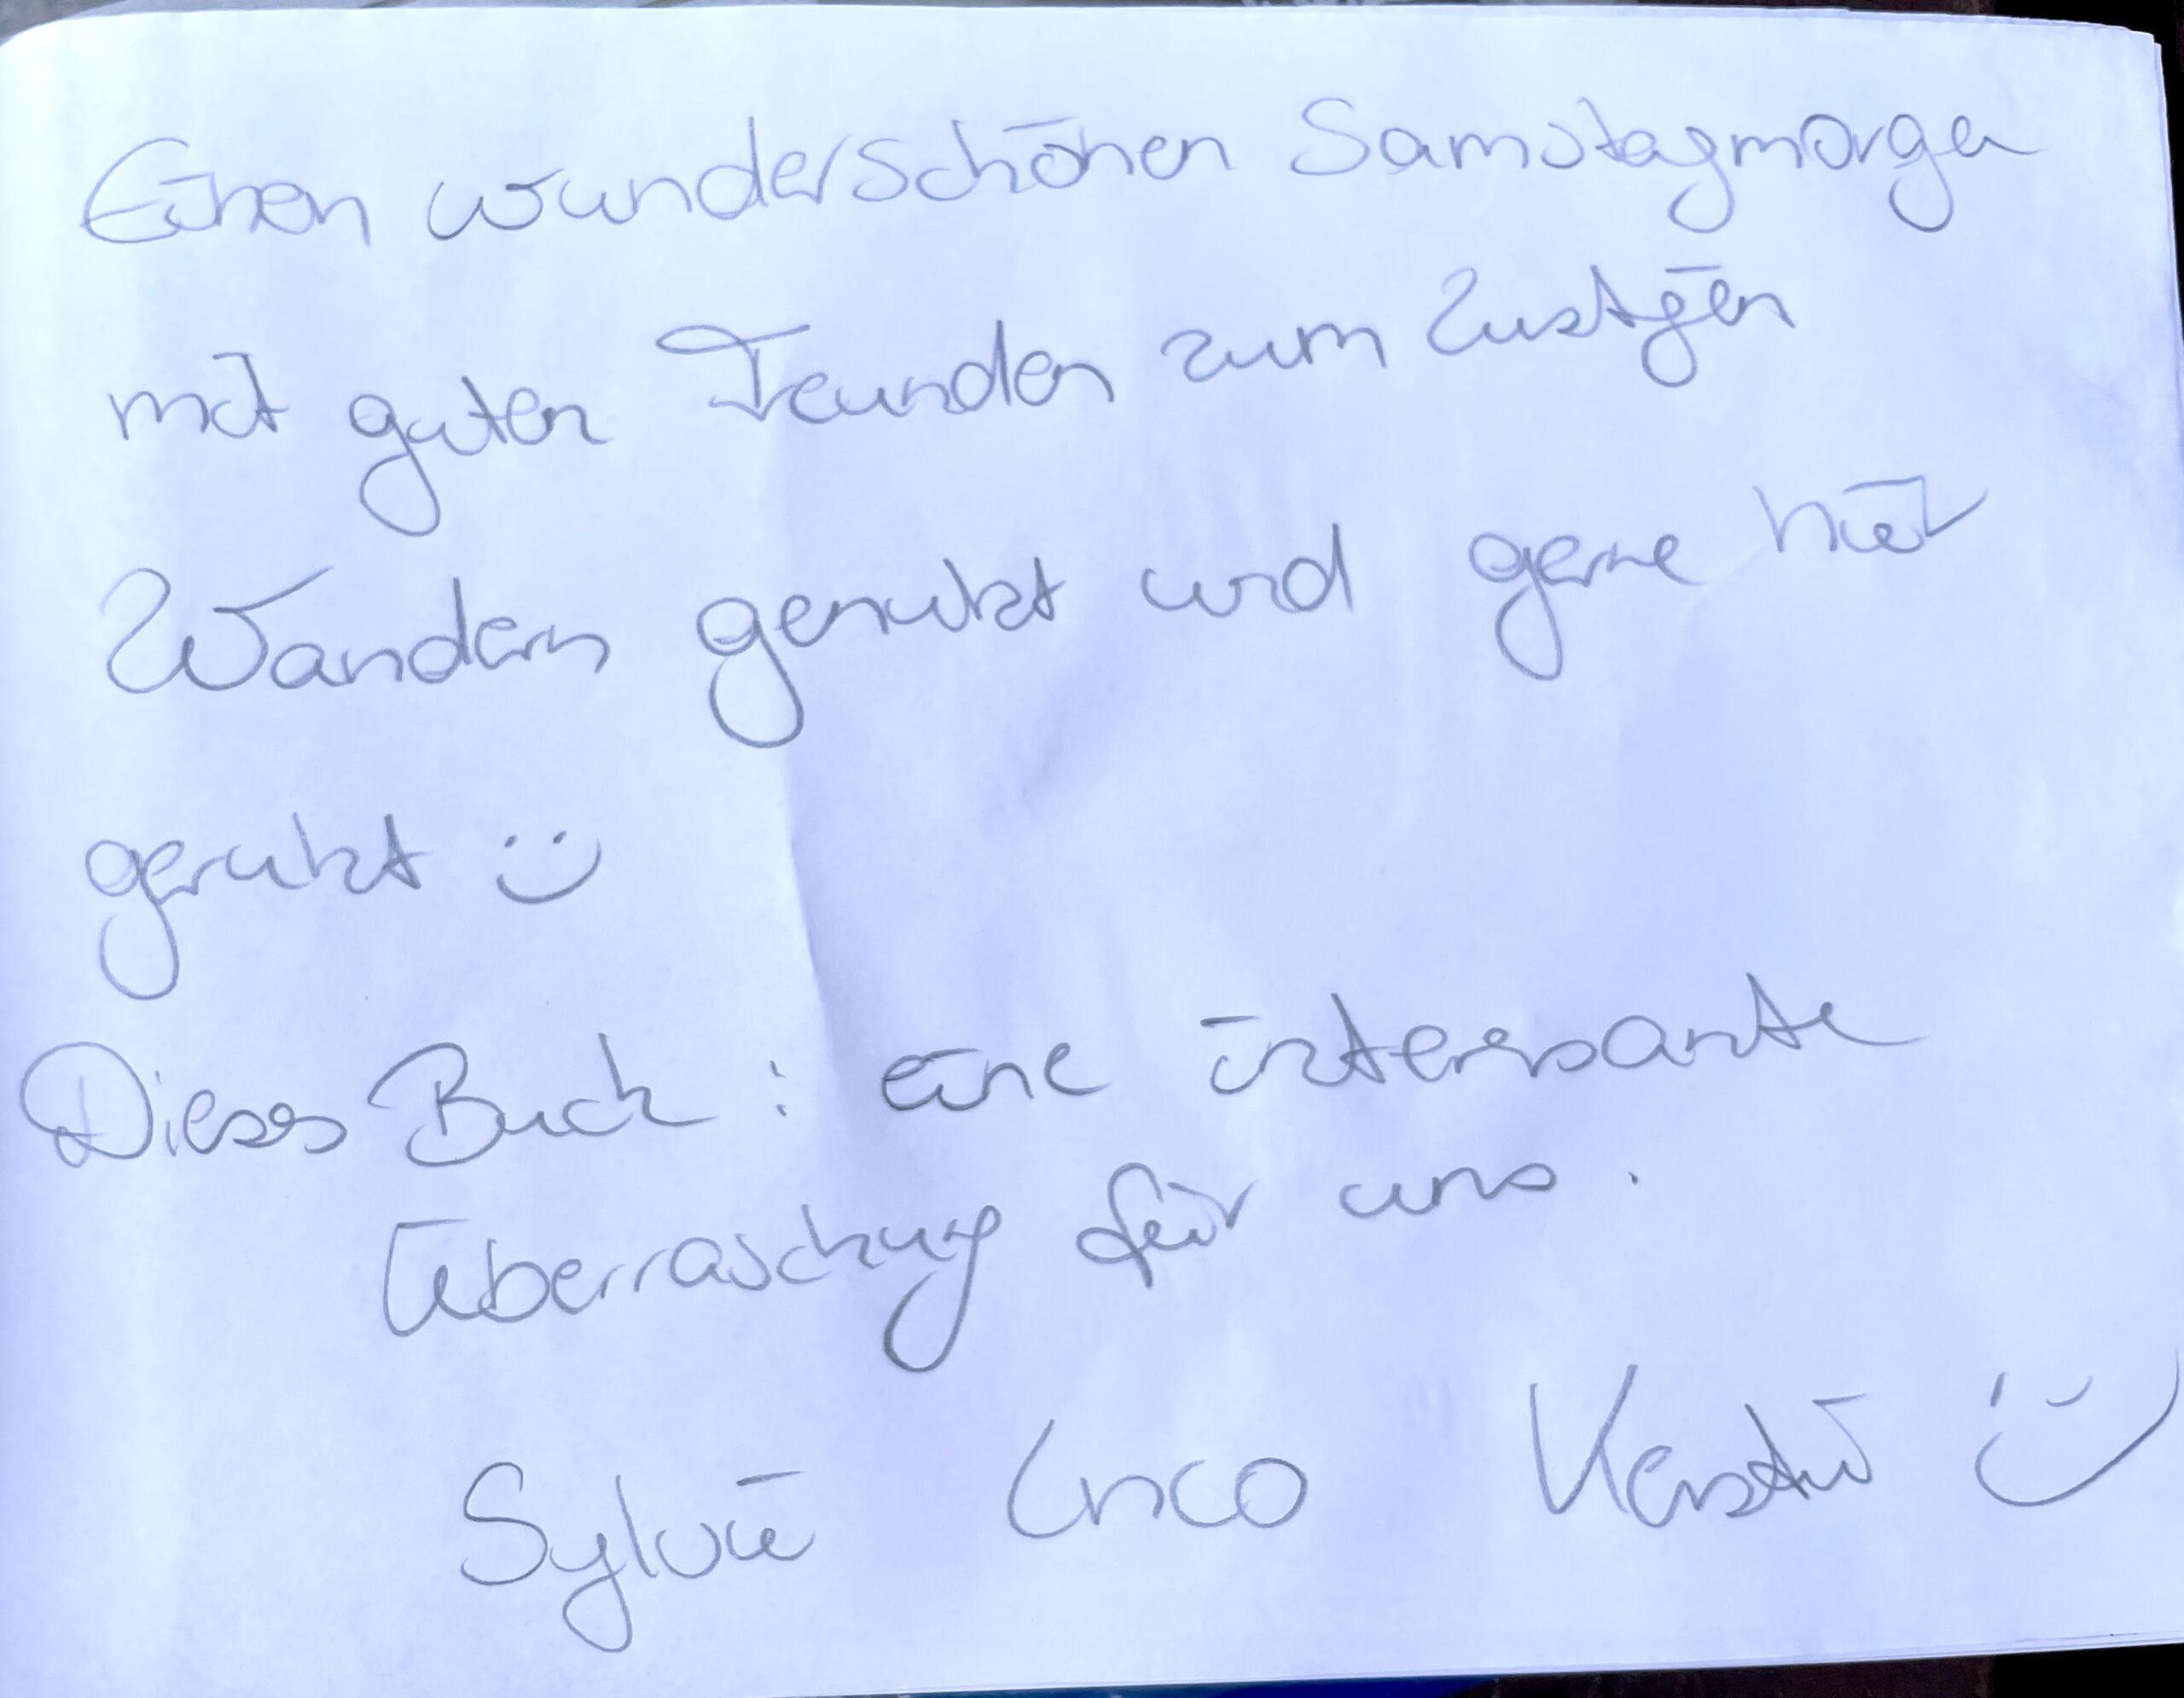 Einen wunderschönen Samstagmorgen
mit guten Freunden zum lustigen
Wandern genutzt und gerne hier
genutzt :)
Dieses Buch: eine interessante
Überraschung für uns.
Sylvie Enrico Kerstin :)